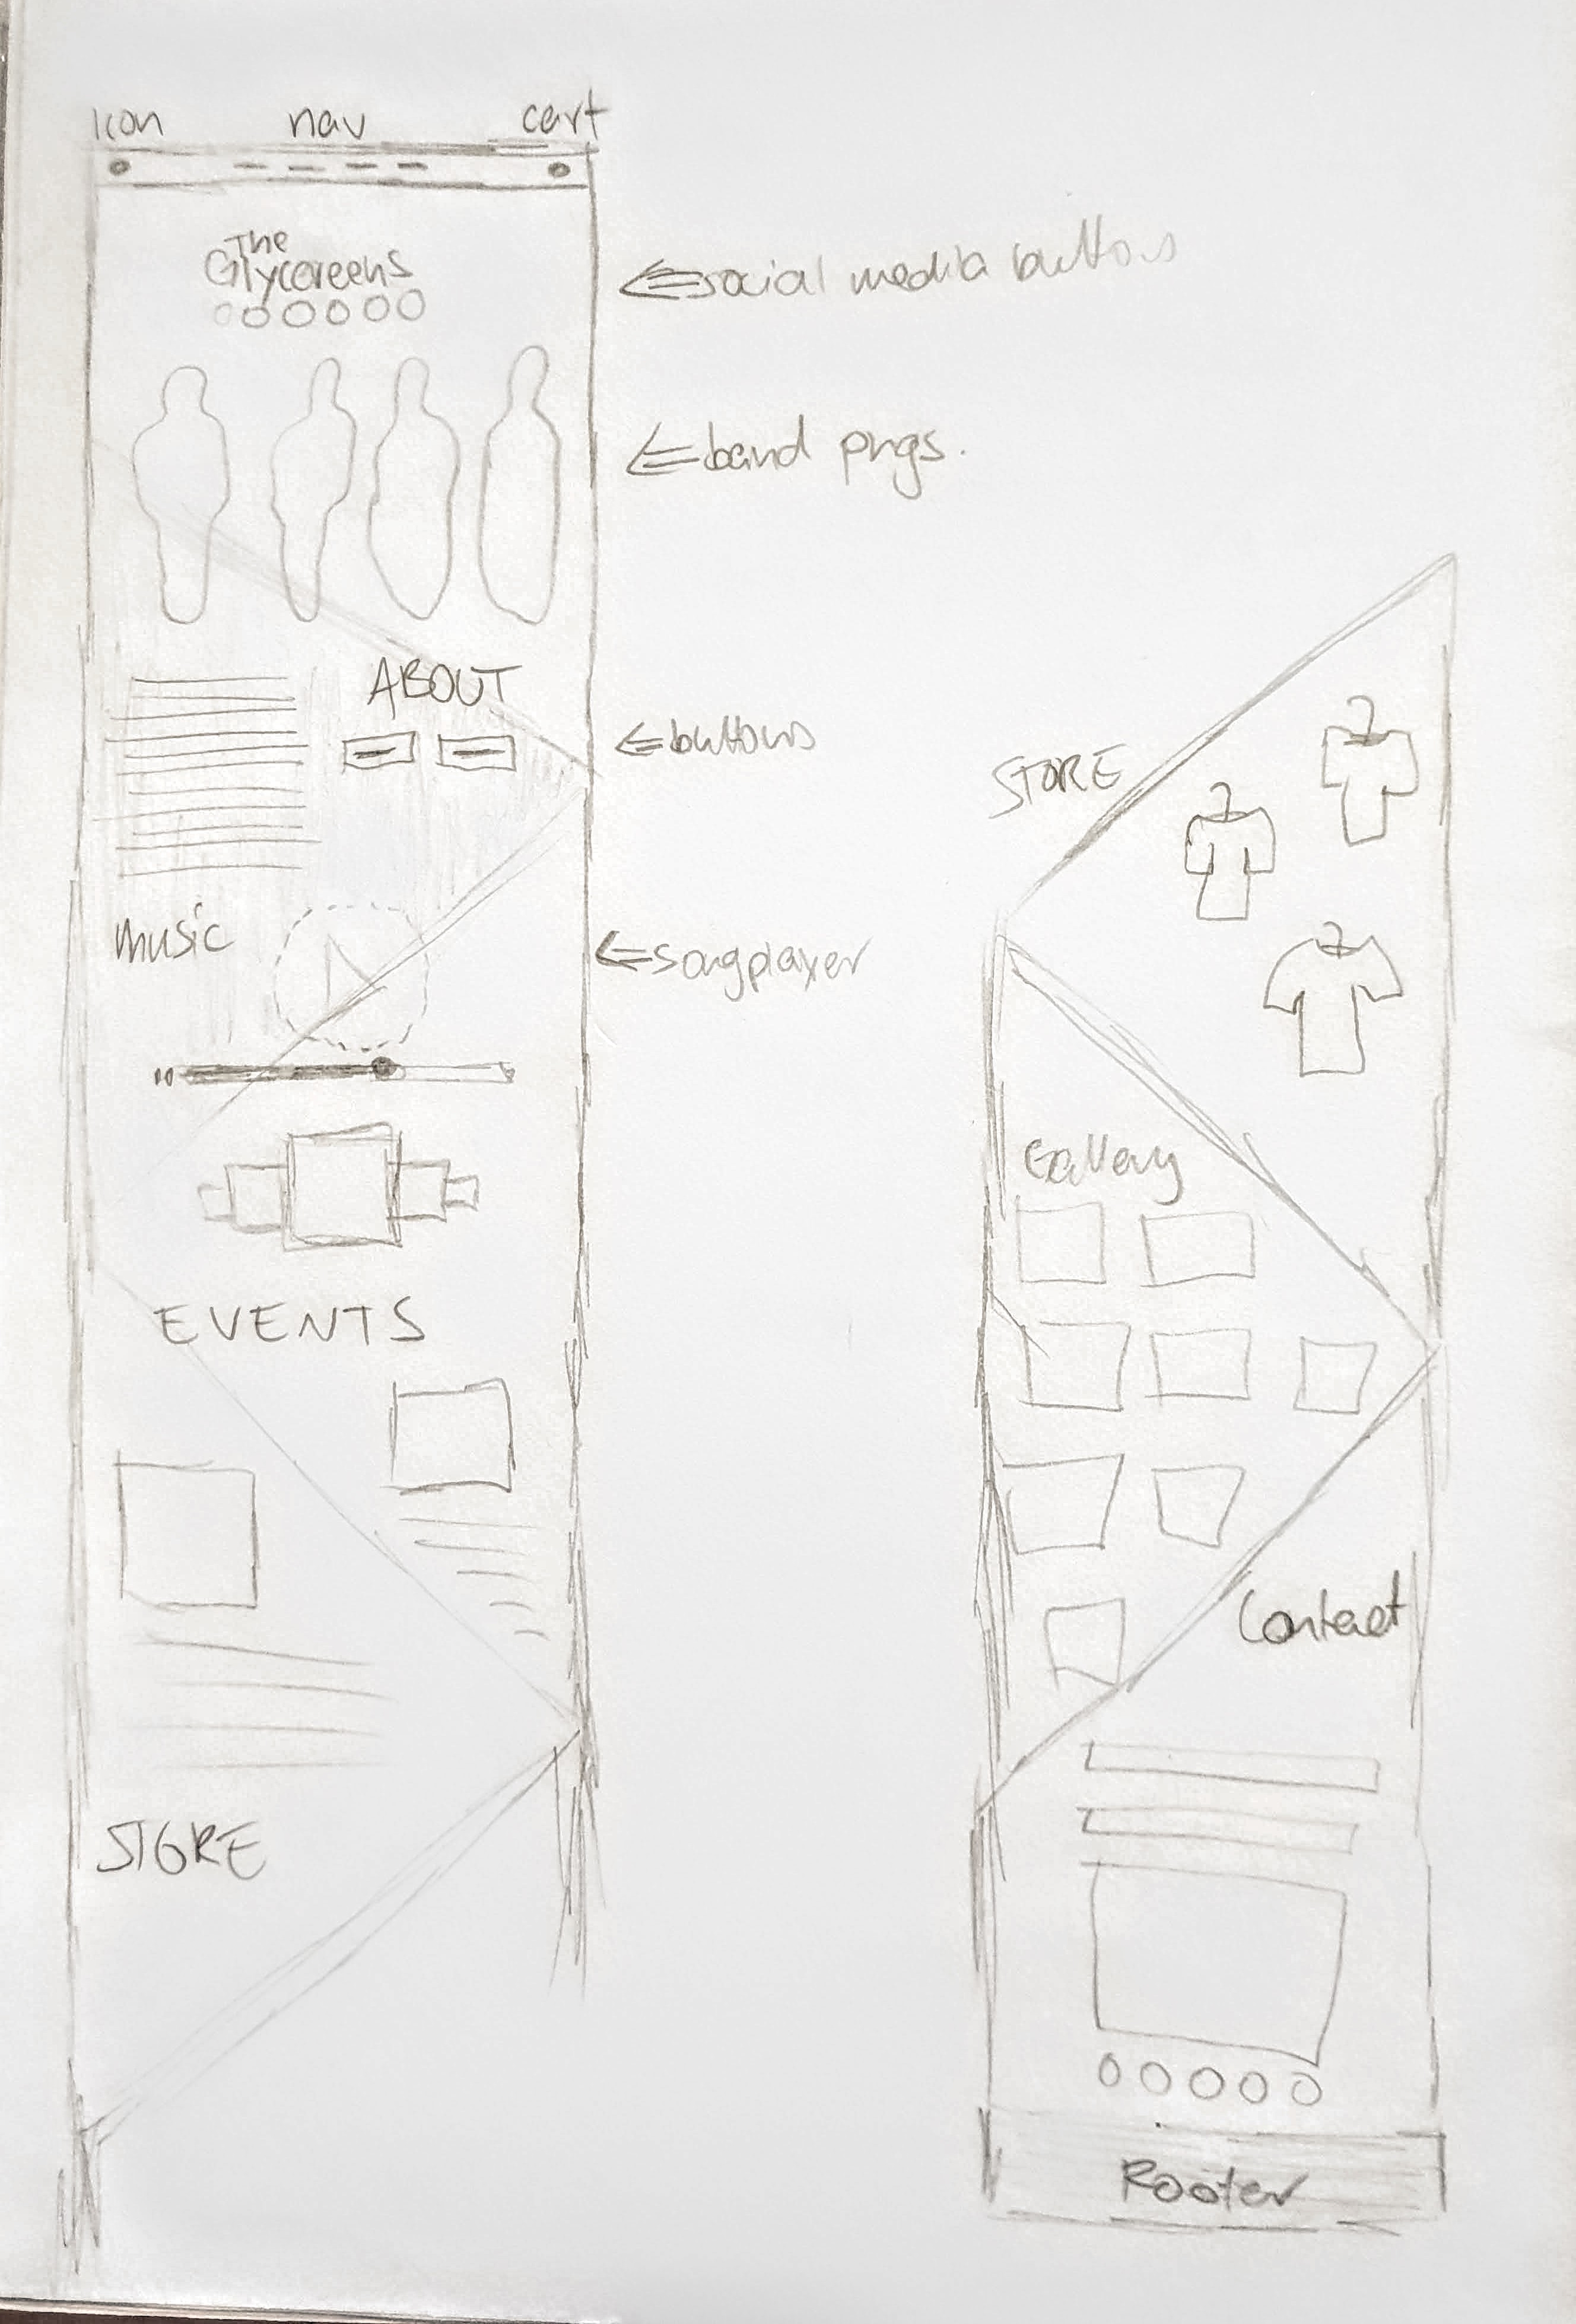 Icon nav cart
The
Glycoreens
social media buttons
band pngs.
ABOUT
buttons
music
songplayer
EVENTS
STORE
STORE
Gallery
Contact
Footer